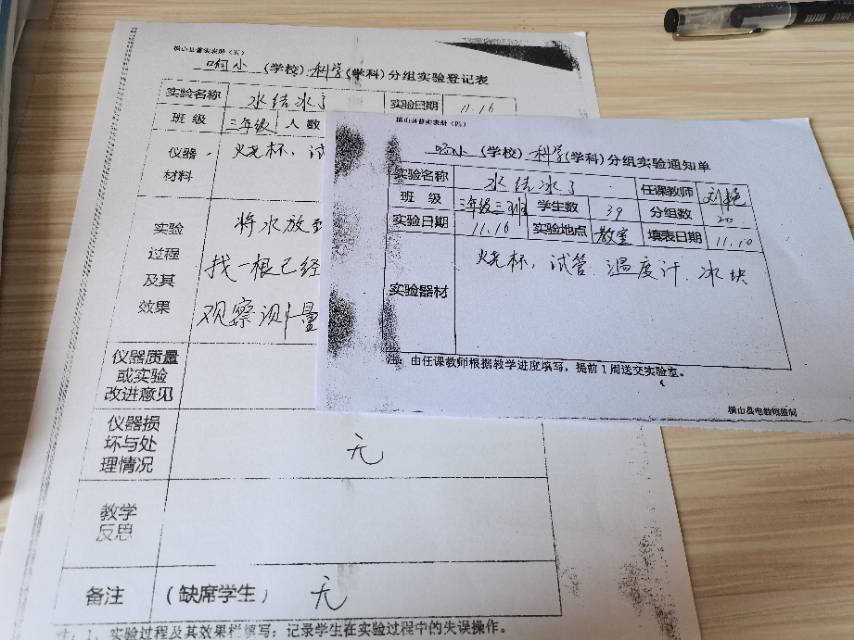 横山县教实表册（五）
响小（学校）科学（学科）分组实验登记表
实验名称 水结冰了 实验日期 11.16
班 级 三年级 人 数
仪器 材料 烧杯、试
实验过程及其效果 将水放到
找一根已经
观察测量
仪器质量或实验改进意见
仪器损坏与处理情况 无
教学反思
备注 （缺席学生） 无
注：1、实验过程及其效果栏填写：记录学生在实验过程中的失误操作。
横山县教实表册（四）
响小（学校）科学（学科）分组实验通知单
实验名称 水结冰了 任课教师 刘艳
班 级 三年级三班 学生数 39 分组数 20
实验日期 11.16 实验地点 教室 填表日期 11.10
实验器材 烧杯、试管 温度计、冰块
注：由任课教师根据教学进度填写，提前1周送交实验室。
横山县电教